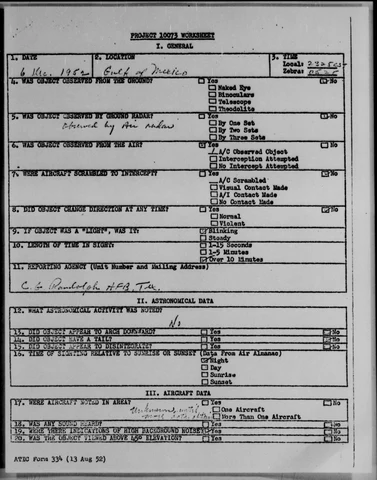 PROJECT 10073 WORKSHEET
I. GENERAL
1. DATE
6 Dec. 1952
2. LOCATION
Gulf of Mexico
3. TIME
Local:
Zebra:
4. WAS OBJECT OBSERVED FROM THE GROUND? Yes No
Naked Eye
Binoculars
Telescope
Theodolite
5. WAS OBJECT OBSERVED BY GROUND RADAR? Yes No
Observed by Air radar By One Set
By Two Sets
By Three Sets
6. WAS OBJECT OBSERVED FROM THE AIR? Yes No
A/C Observed Object
Interception Attempted
No Intercept Attempted
7. WERE AIRCRAFT SCRAMBLED TO INTERCEPT? Yes No
A/C Scrambled
Visual Contact Made
A/I Contact Made
No Contact Made
8. DID OBJECT CHANGE DIRECTION AT ANY TIME? Yes No
Normal
Violent
9. IF OBJECT WAS A "LIGHT", WAS IT: Blinking
Steady
10. LENGTH OF TIME IN SIGHT: 1-15 Seconds
1-5 Minutes
Over 10 Minutes
11. REPORTING AGENCY (Unit Number and Mailing Address)
C.O. Randolph AFB, Tex
II. ASTRONOMICAL DATA
12. WHAT ASTRONOMICAL ACTIVITY WAS NOTED?
13. DID OBJECT APPEAR TO ARCH DOWNWARD? Yes No
14. DID OBJECT HAVE A TAIL? Yes No
15. DID OBJECT APPEAR TO DISINTEGRATE? Yes No
16. TIME OF SIGHTING RELATIVE TO SUNRISE OR SUNSET (Data From Air Almanac)
Night
Day
Sunrise
Sunset
III. AIRCRAFT DATA
17. WERE AIRCRAFT NOTED IN AREA? Yes No
Unknown One Aircraft
More Than One Aircraft
18. WAS ANY SOUND HEARD? Yes No
19. WERE THERE INDICATIONS OF HIGH BACKGROUND NOISE? Yes No
20. WAS THE OBJECT VIEWED ABOVE 45° ELEVATION? Yes No
ATIC Form 334 (13 Aug 52)